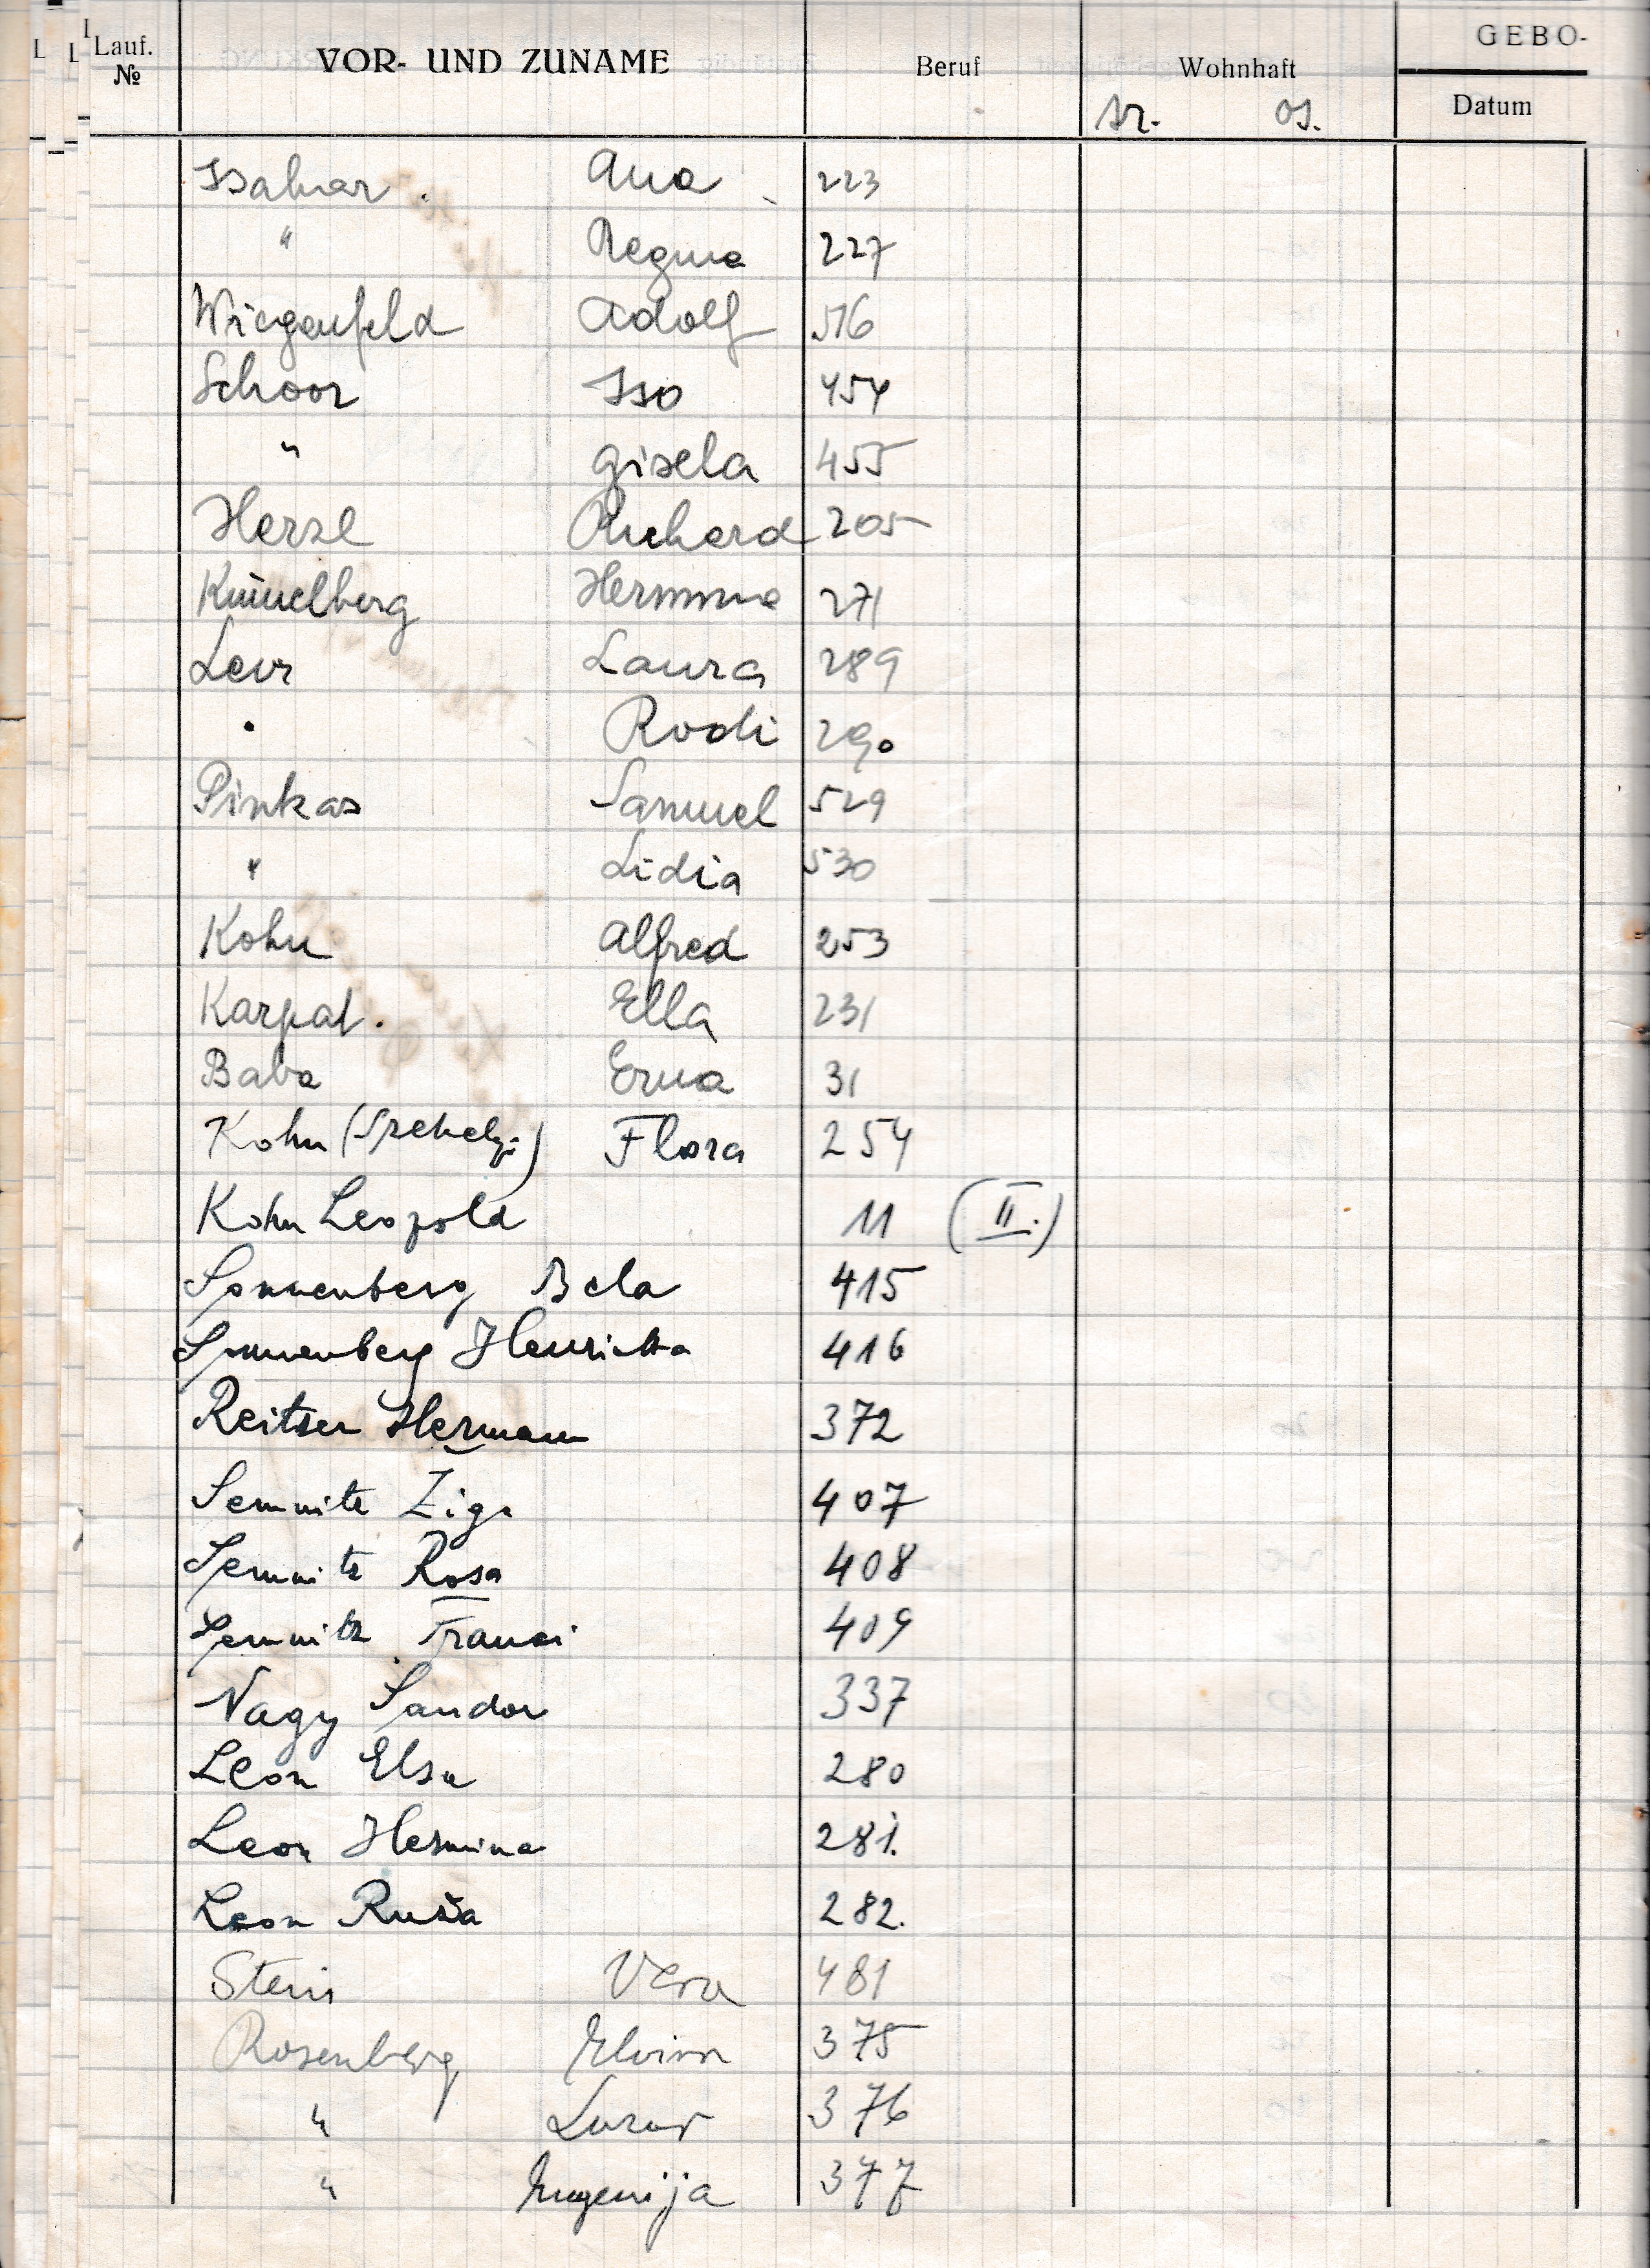 Lauf. №
VOR- UND ZUNAME
Beruf
Wohnhaft
GEBO-
Datum
Ana 223
" Regina 227
Adolf 516
Schoor Iso 454
" Gisela 455
Herzl Richard 205
Hermina 271
Levi Laura 289
" Rudi 290
Pinkas Samuel 529
" Lidia 530
Kohn Alfred 253
Karpat. Ella 231
Baba Erna 31
Kohn (Szekely) Flora 254
Kohn Leopold 11 (II.)
Sonnenberg Bela 415
Sonnenberg Henrietta 416
Reitzer Hermann 372
Semnitz Ziga 407
Semnitz Rosa 408
Semnitz Franci 409
Nagy Sandor 337
Leon Elsa 280
Leon Hermina 281.
Leon Ruža 282.
Stein Vera 481
Rosenberg Elvira 375
" Lazar 376
" Eugenija 377